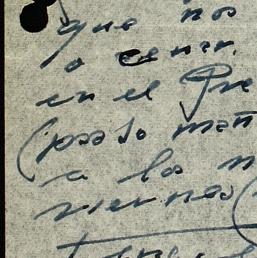 que nos
a cenar.
en el Pre
(paso mañ
a las n
viernes (